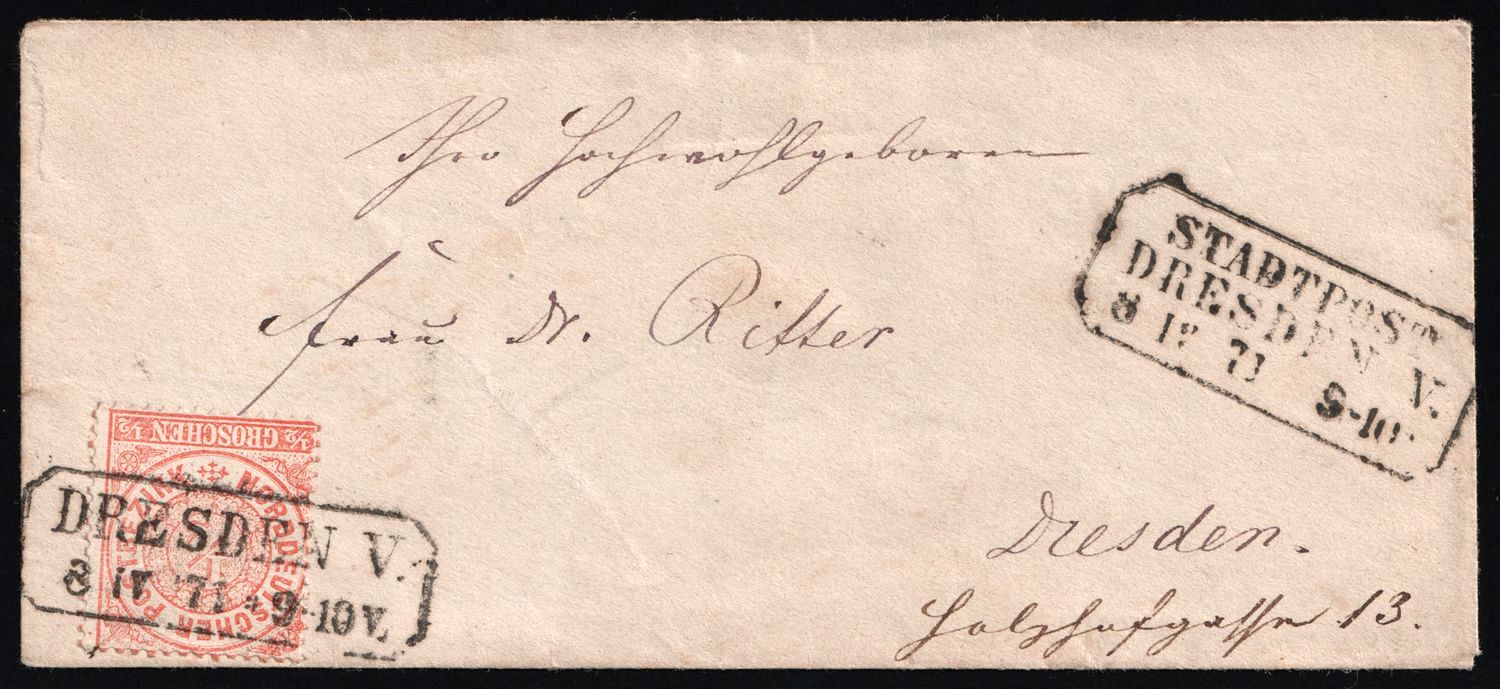 Ihro Hochwohlgeboren
Frau Dr. Ritter
STADTPOST
DRESDEN V.
8 IV 71 9-10
½ GROSCHEN ½
NORDDEUTSCHER POSTBEZIRK
DRESDEN V.
8 IV 71 9-10V.
Dresden.
Holzhofgasse 13.